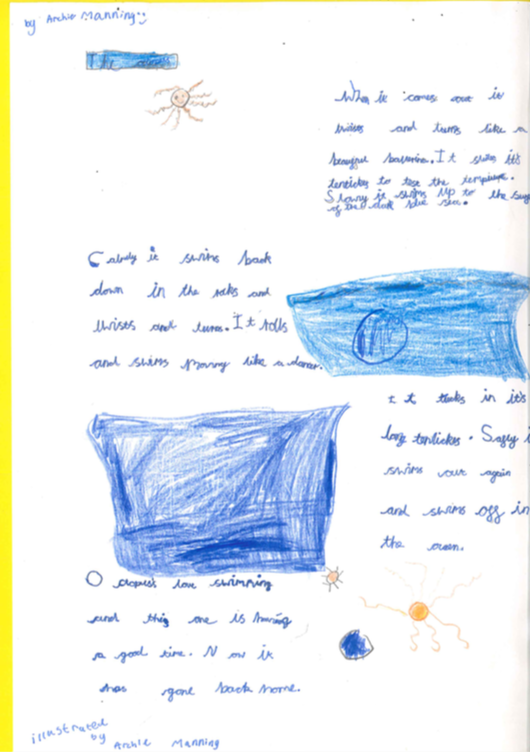 by Archie Manning
The
When it comes out it
twists and turns like a
ballerina. It it's
tenticles to the
Slowy it swims up to the
of the dark blue sea.
Calmly it swims back
down in the rocks and
twists and turns. It rolls
and swims like a dancer.
It tucks in it's
long tenticles. Safly
swims out again
and swims off in
the ocean.
love swimming
and this one is having
a good time. Now it
has gone back home.
illustrated
by
Archie Manning